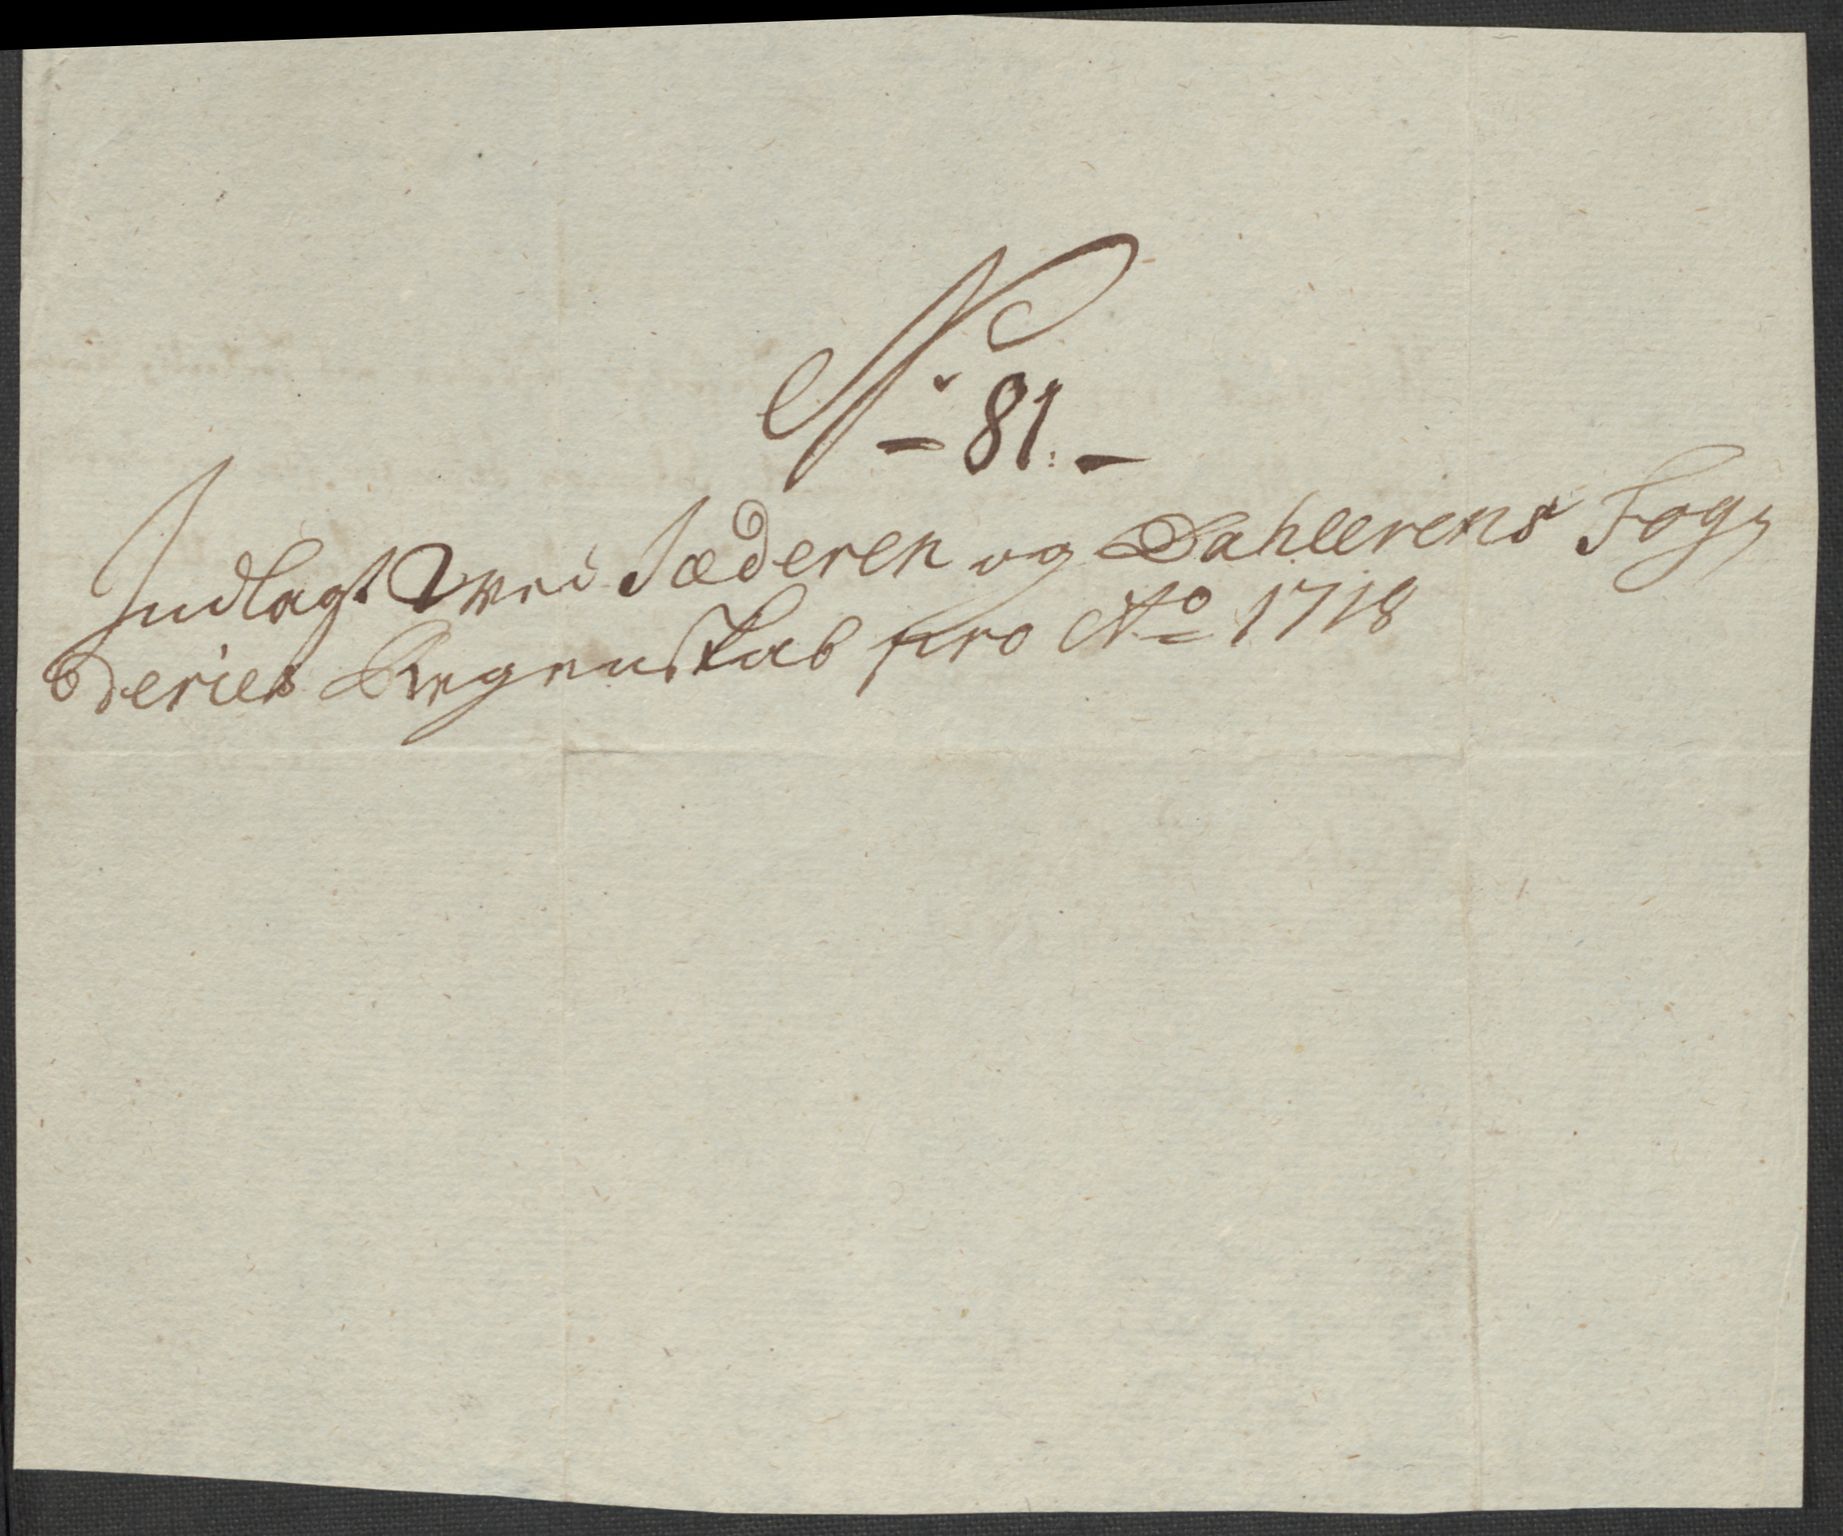 No 81.
Indlagt ved Jæderen og Dahlerens Fog-
deries Regenskab pro Ao 1718